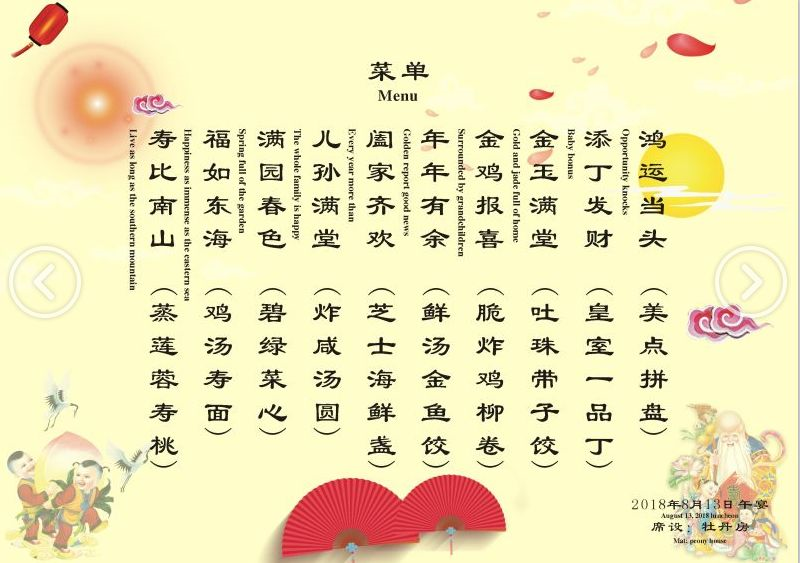 菜单
Menu
鸿运当头（美点拼盘）
Opportunity knocks
添丁发财（皇室一品丁）
Baby bonus
金玉满堂（吐珠带子饺）
Gold and jade full of home
金鸡报喜（脆炸鸡柳卷）
Surrounded by grandchildren
年年有余（鲜汤金鱼饺）
Golden report good news
阖家齐欢（芝士海鲜盏）
Every year more than
儿孙满堂（炸咸汤圆）
The whole family is happy
满园春色（碧绿菜心）
Spring full of the garden
福如东海（鸡汤寿面）
Happiness as immense as the eastern sea
寿比南山（蒸莲蓉寿桃）
Live as long as the southern mountain
2018年8月13日午宴
August 13, 2018 luncheon
席设：牡丹房
Mat: peony house